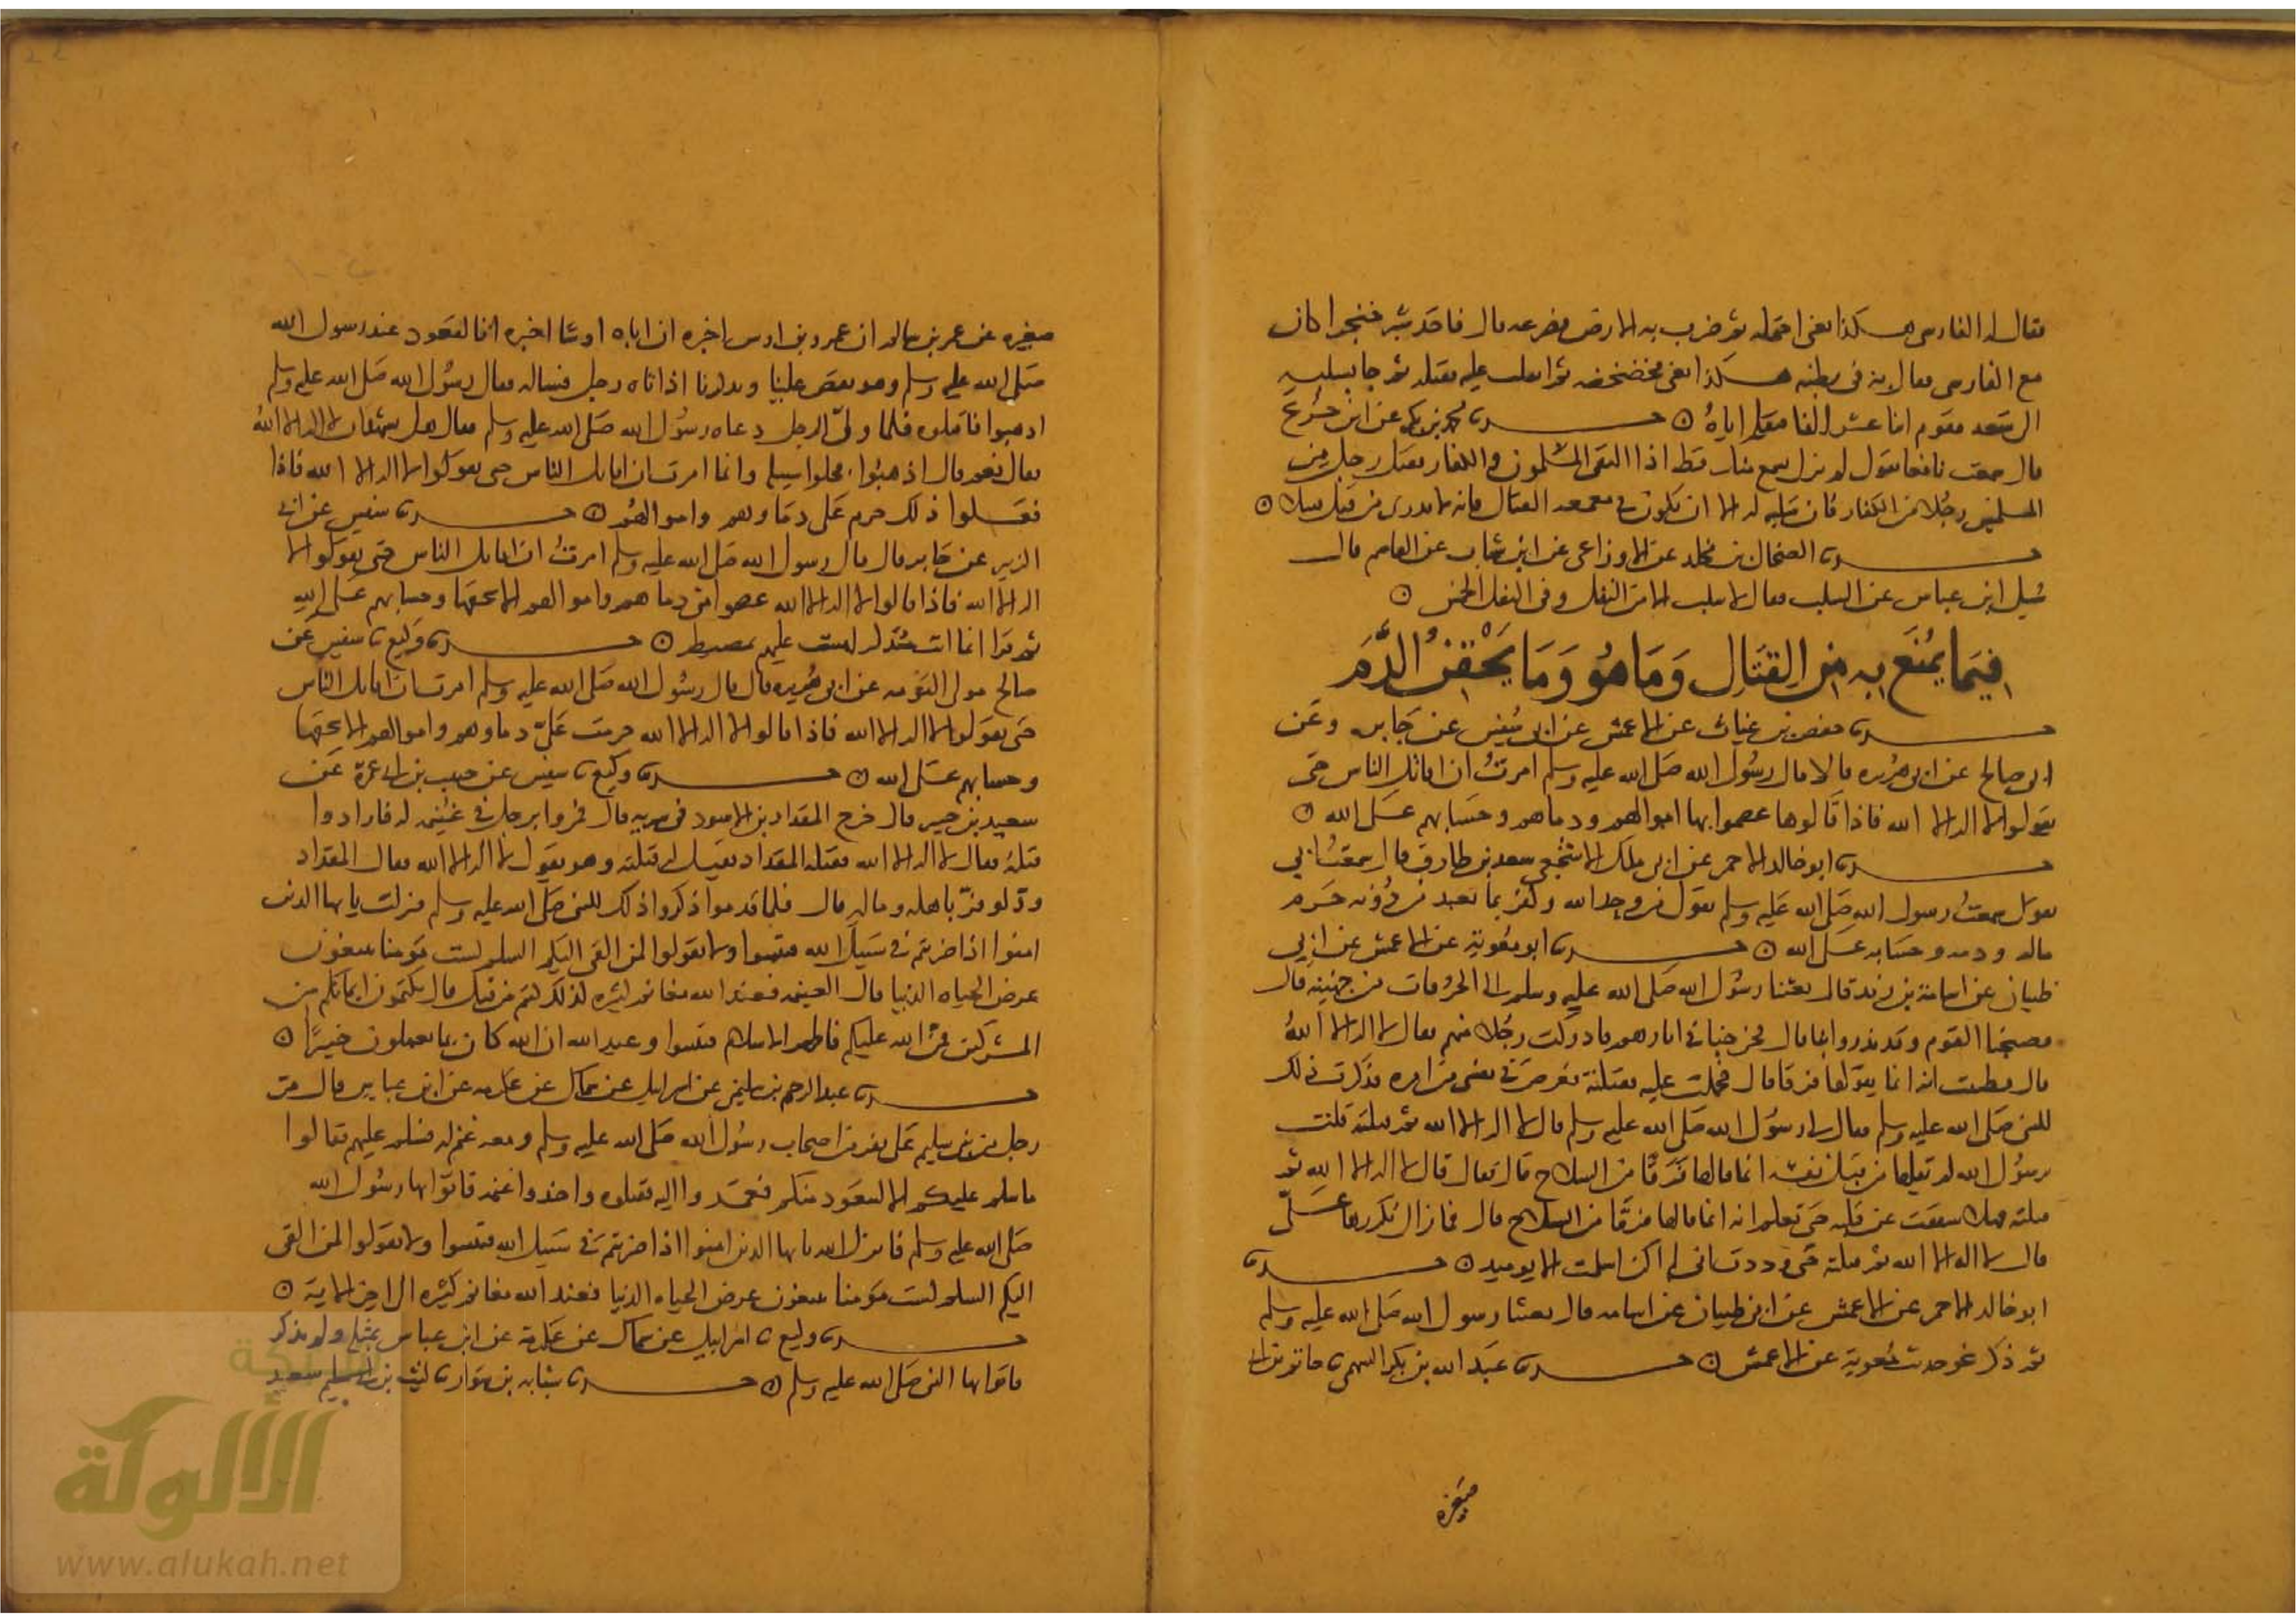 فقال له الفارسي هكذا يعني احتمله ثم ضرب به الارض فصرعه قال فاخذ شبر خنجرا كان
مع الفارسي فقال به في بطنه هكذا يعني فخضخضه ثم انقلب عليه فقتله ثم جا بسلبه
الى سعد فقوم اثنا عشر الفا فنفله اياه ⊙ حدثنا محمد بن بكر عن ابن جريج
قال سمعت نافعا يقول لم نزل نسمع منذ قط اذا التقى المسلمون والكفار فقتل رجل من
المسلمين رجلا من الكفار فان سلبه له الا ان يكون في معمعه القتال فانه لا يدرى من قتل قتيلا ⊙
حدثنا الضحاك بن مخلد عن الاوزاعي عن ابن شهاب عن القاسم قال
سئل ابن عباس عن السلب فقال لا سلب الا من النفل وفي النفل الخمس ⊙
فيما يمنع به من القتال وما هو وما يحقن الدم
حدثنا حفص بن غياث عن الاعمش عن ابي سفين عن جابر وعن
ابي صالح عن ابي هريره قالا قال رسول الله صلى الله عليه وسلم امرت ان اقاتل الناس حتى
يقولوا لا اله الا الله فاذا قالوها عصموا بها اموالهم ودماهم وحسابهم على الله ⊙
حدثنا ابو خالد الاحمر عن ابي ملك الاشجعي سعد بن طارق قال سمعت ابي
يقول سمعت رسول الله صلى الله عليه وسلم يقول من وحد الله وكفر بما يعبد من دونه حرم
ماله ودمه وحسابه على الله ⊙ حدثنا ابو معوية عن الاعمش عن ابي
ظبيان عن اسامة بن زيد قال بعثنا رسول الله صلى الله عليه وسلم الى الحرقات من جهينة قال
فصبحنا القوم وقد نذروا بنا قال فخرجنا في اثارهم فادركت رجلا منهم فقال لا اله الا الله
قال فظننت انه انما يقولها فرقا قال فحملت عليه فقتلته فعرض في نفسي من امره فذكرت ذلك
للنبي صلى الله عليه وسلم فقال لي رسول الله صلى الله عليه وسلم قال لا اله الا الله ثم قتلته قلت
يرسول الله لم يقلها من قبل نفسه انما قالها فرقا من السلاح قال فقال قال لا اله الا الله ثم
قتلته فهلا شققت عن قلبه حتى تعلم انه انما قالها فرقا من السلاح قال فما زال يكررها علي
قال لا اله الا الله ثم قتلته حتى وددت اني لم اكن اسلمت الا يوميد ⊙ حدثنا
ابو خالد الاحمر عن الاعمش عن ابي ظبيان عن اسامه قال بعثنا رسول الله صلى الله عليه وسلم
ثم ذكر نحو حديث معوية عن الاعمش ⊙ حدثنا عبد الله بن بكر السهمي نا حاتم بن ابي
صغيره
صغيره عن عمر بن سالم ان عمرو بن اوس اخبره ان اباه اوسا اخبره انا لقعود عند رسول الله
صلى الله عليه وسلم وهو يقص علينا ويذكرنا اذ اتاه رجل فساله فقال رسول الله صلى الله عليه وسلم
اذهبوا فاقتلوه فلما ولى الرجل دعاه رسول الله صلى الله عليه وسلم فقال هل يشهد ان لا اله الا الله
فقال نعم قال اذهبوا فخلوا سبيله وانما امرت ان اقاتل الناس حتى يقولوا لا اله الا الله فاذا
فعلوا ذلك حرم علي دماوهم واموالهم ⊙ حدثنا وكيع نا سفين عن ابي
الزبير عن جابر قال قال رسول الله صلى الله عليه وسلم امرت ان اقاتل الناس حتى يقولوا لا
اله الا الله فاذا قالوا لا اله الا الله عصموا مني دماهم واموالهم الا بحقها وحسابهم على الله
ثم قرا انما انت مذكر لست عليهم بمصيطر ⊙ حدثنا وكيع نا سفين عن
صالح مولى التومه عن ابي هريره قال قال رسول الله صلى الله عليه وسلم امرت ان اقاتل الناس
حتى يقولوا لا اله الا الله فاذا قالوا لا اله الا الله حرمت علي دماوهم واموالهم الا بحقها
وحسابهم على الله ⊙ حدثنا وكيع نا سفين عن حبيب بن ابي عمرة عن
سعيد بن جبير قال خرج المقداد بن الاسود في سريه قال فمروا برجل في غنيمه له فارادوا
قتله فقال لا اله الا الله فقتله المقداد فقيل له قتلته وهو يقول لا اله الا الله فقال المقداد
ود لو فر باهله وماله قال فلما قدموا ذكروا ذلك للنبي صلى الله عليه وسلم فنزلت يا ايها الذين
امنوا اذا ضربتم في سبيل الله فتبينوا ولا تقولوا لمن القى اليكم السلم لست مومنا تبتغون
عرض الحياه الدنيا قال الغنيمه فعند الله مغانم كثيره كذلك كنتم من قبل قال تكتمون ايمانكم من
المشركين فمن الله عليكم فاظهر الاسلام فتبينوا وعيد الله ان الله كان بما تعملون خبيرا ⊙
حدثنا عبد الرحيم بن سليمن عن اسرايل عن سماك عن عكرمه عن ابن عباس قال مر
رجل من بني سليم على نفر من اصحاب رسول الله صلى الله عليه وسلم ومعه غنم له فسلم عليهم فقالوا
ما سلم عليكم الا ليتعوذ منكم فعمدوا اليه فقتلوه واخذوا غنمه فاتوا بها رسول الله
صلى الله عليه وسلم فانزل الله يا ايها الذين امنوا اذا ضربتم في سبيل الله فتبينوا ولا تقولوا لمن القى
اليكم السلم لست مومنا تبتغون عرض الحياه الدنيا فعند الله مغانم كثيره الى اخر الاية ⊙
حدثنا وكيع نا اسرايل عن سماك عن عكرمة عن ابن عباس بمثله ولم يذكر
فاتوا بها النبي صلى الله عليه وسلم ⊙ حدثنا شبابه بن سوار نا ليث بن سعيد
شبكة
الألوكة
www.alukah.net